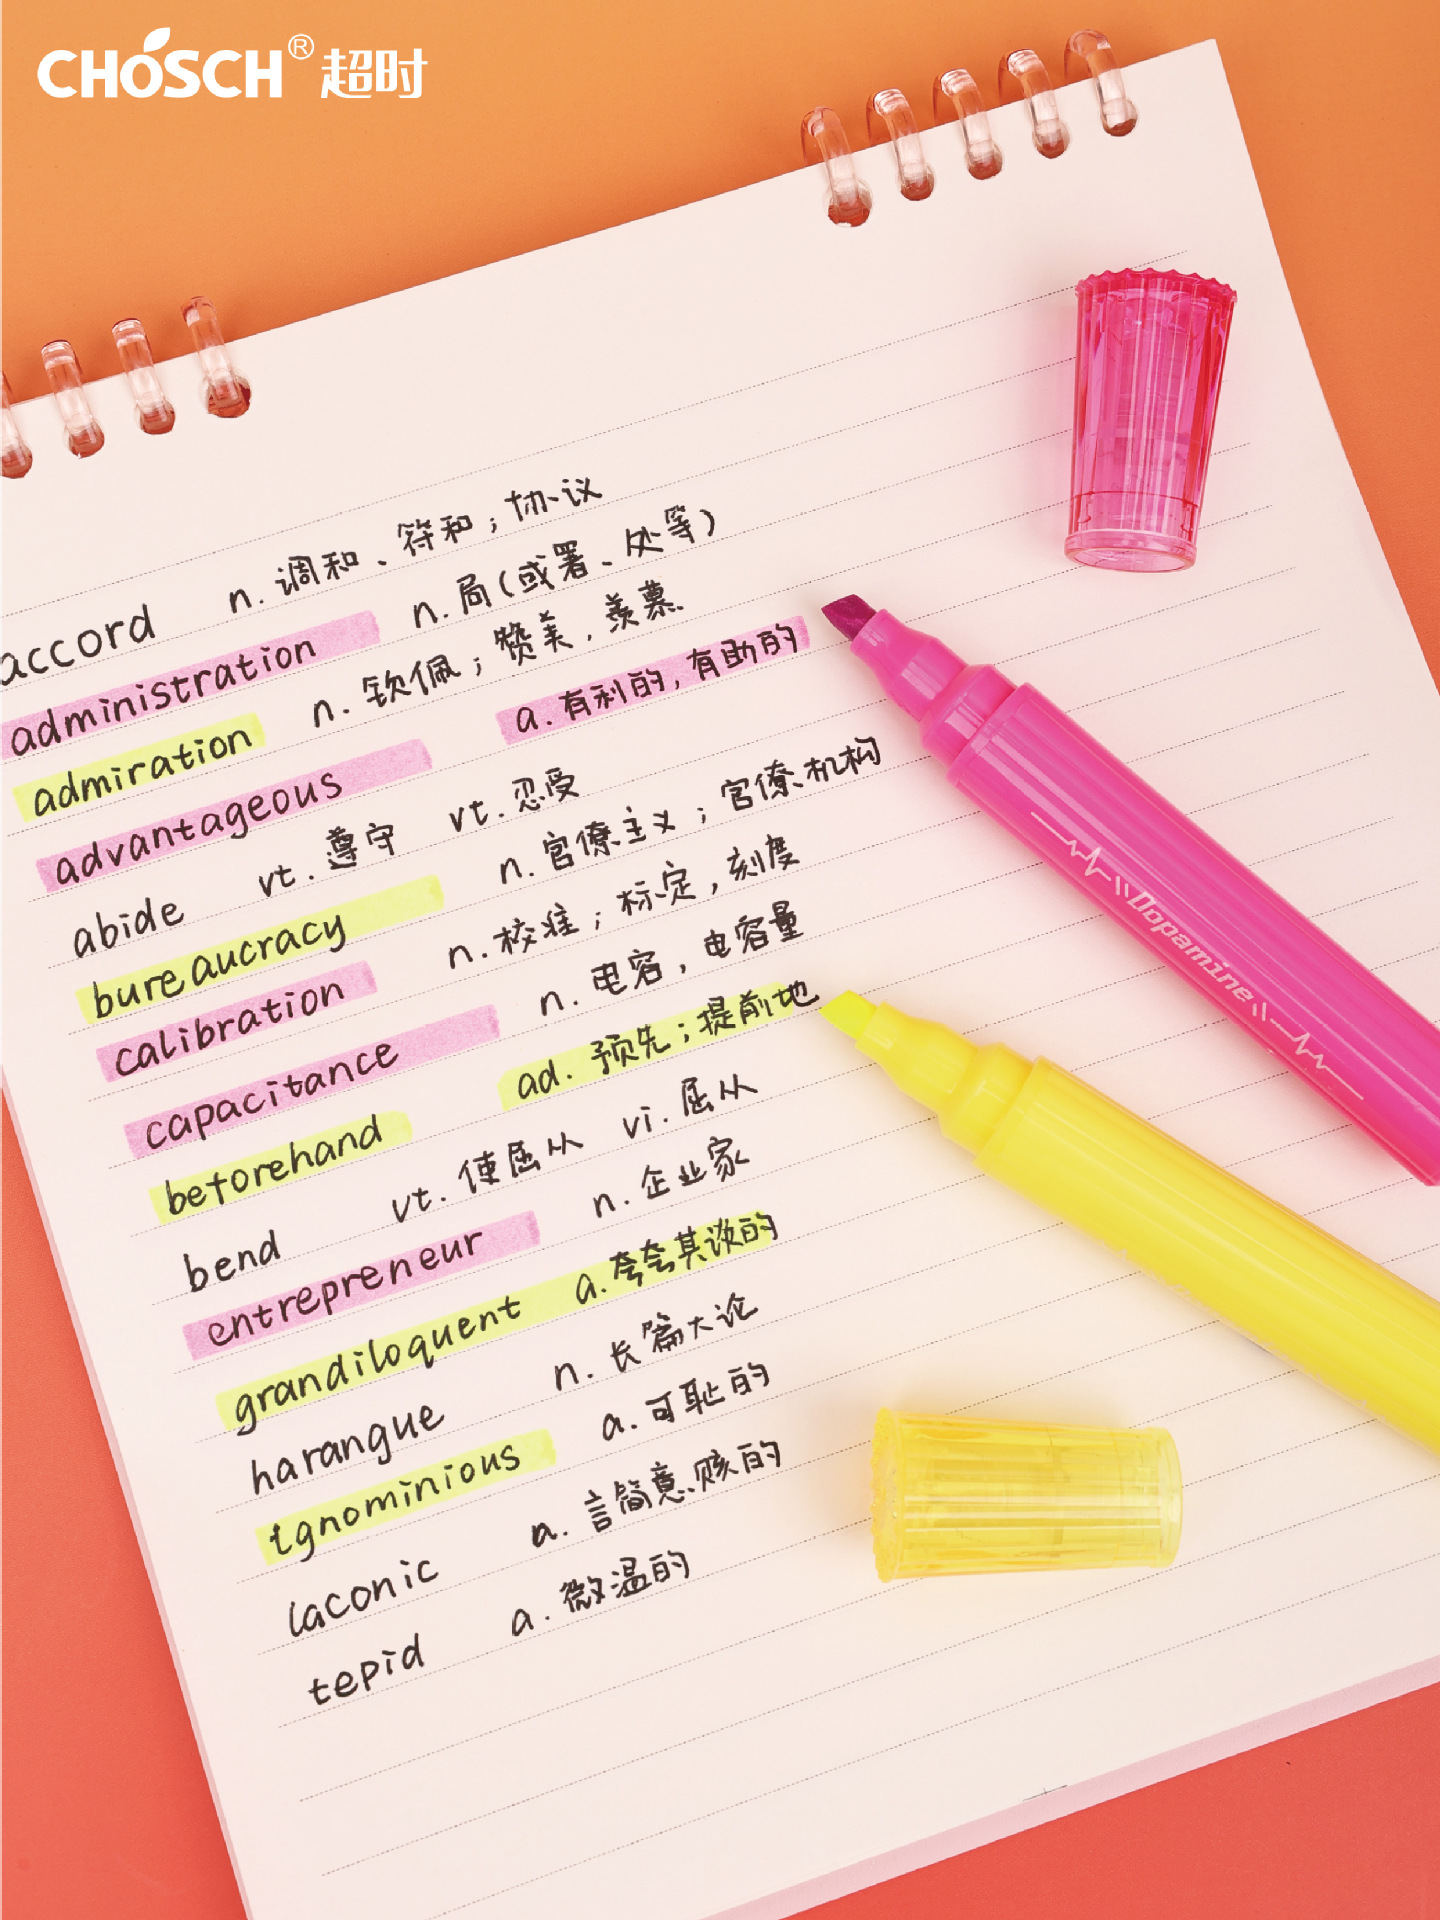 CHOSCH® 超时
accord n. 调和、符和；协议
administration n. 局(或署、处等)
admiration n. 钦佩；赞美，羡慕
advantageous a. 有利的，有助的
abide vt. 遵守 vt. 忍受
bureaucracy n. 官僚主义；官僚机构
calibration n. 校准；标定，刻度
capacitance n. 电容，电容量
betorehand ad. 预先；提前地
bend vt. 使屈从 vi. 屈从
entrepreneur n. 企业家
grandiloquent a. 夸夸其谈的
harangue n. 长篇大论
ignominious a. 可耻的
laconic a. 言简意赅的
tepid a. 微温的
Dopamine